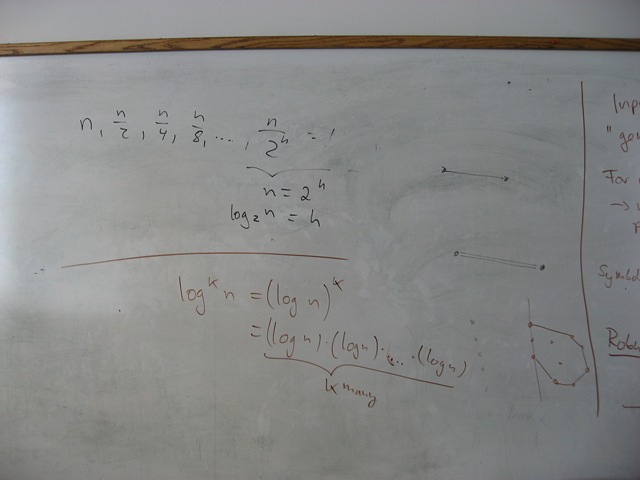 n, n/2, n/4, n/8, ..., n/2^h = 1
n = 2^h
log₂ n = h
log^k n = (log n)^k
= (log n) · (log n) · ... · (log n)
k many
Inp
"go
For
→
F
Symbol
Rob